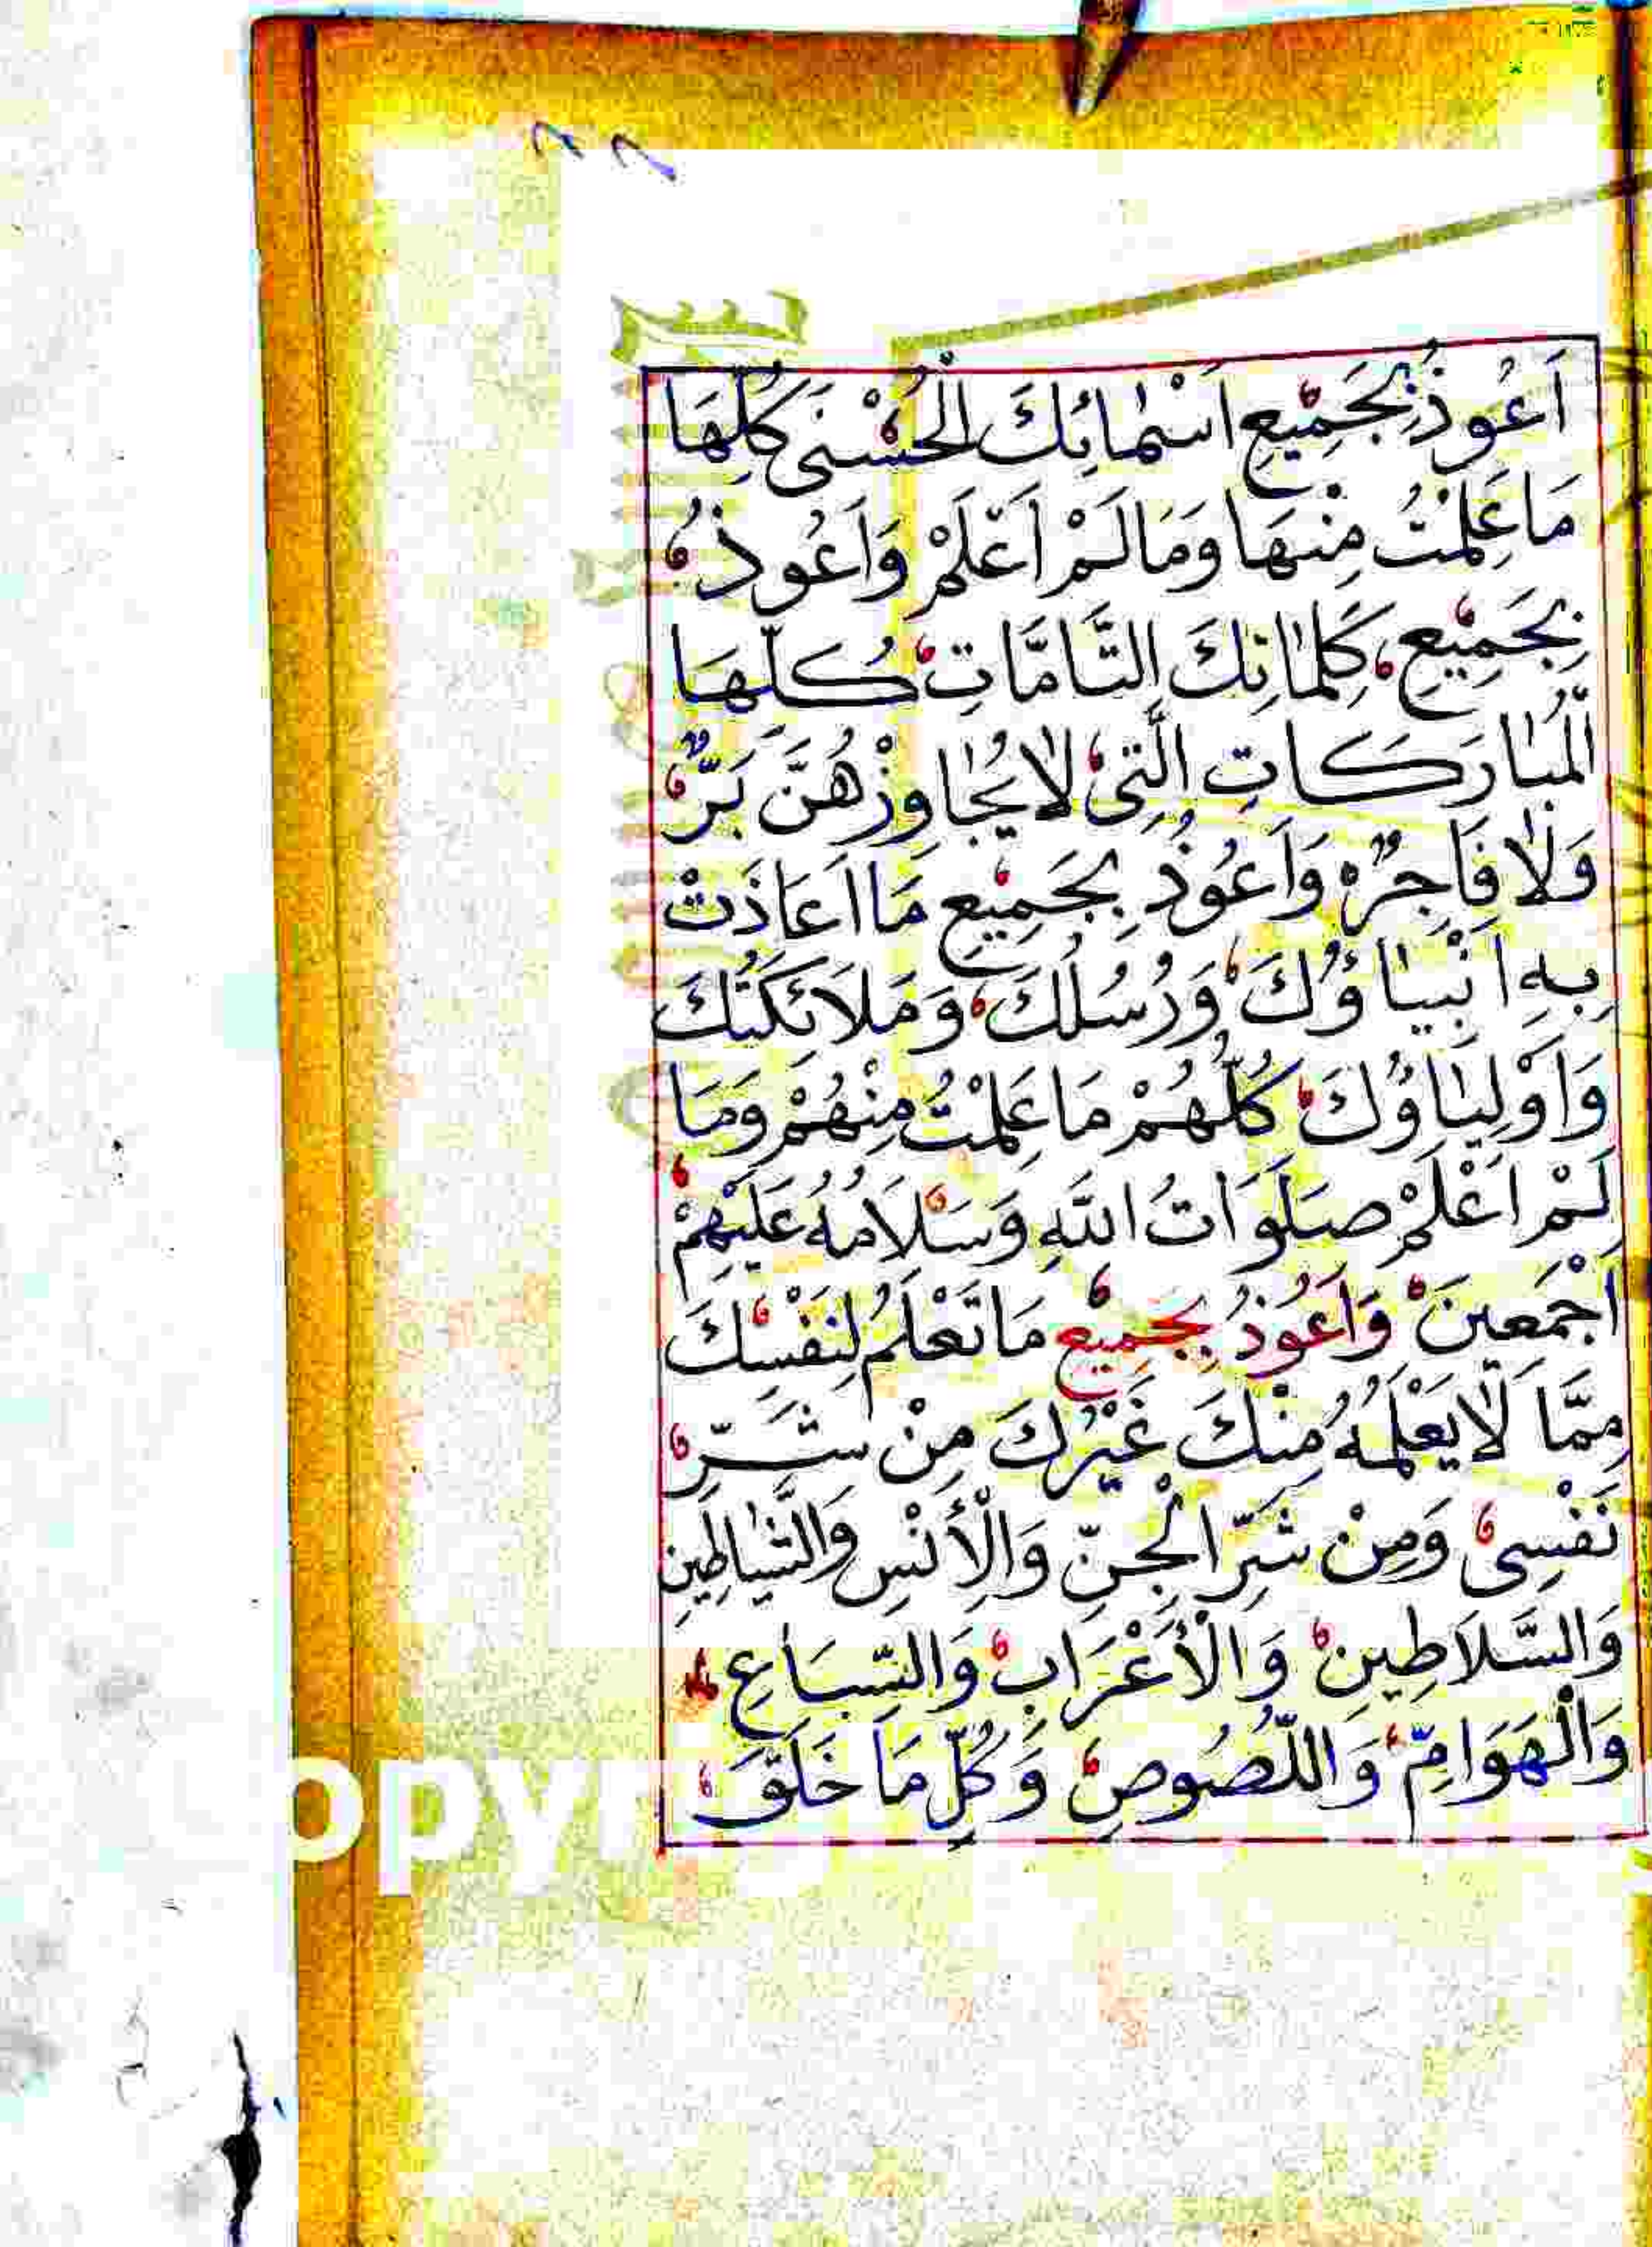 ٨٨
اَعُوذُ بِجَمِيْعِ اَسْمٰائِكَ الْحُسْنٰى كُلِّهَا
مَا عَلِمْتُ مِنْهَا وَمَا لَمْ اَعْلَمْ وَاَعُوذُ
بِجَمِيْعِ كَلِمٰاتِكَ التَّامَّاتِ كُلِّهَا
الْمُبٰارَكَاتِ الَّتِىْ لاٰ يُجٰاوِزْهُنَّ بَرٌّ
وَلاٰ فَاجِرٌ وَاَعُوْذُ بِجَمِيْعِ مَا اَعَاذَتْ
بِهِ اَنْبِيٰاؤُكَ وَرُسُلُكَ وَمَلاَئِكَتُكَ
وَاَوْلِيٰاؤُكَ كُلُّهُمْ مَا عَلِمْتُ مِنْهُمْ وَمَا
لَمْ اَعْلَمْ صَلَوَاتُ اللَّهِ وَسَلاَمُهُ عَلَيْهِمْ
اَجْمَعِينَ وَاَعُوْذُ بِجَمِيْعِ مَا تَعْلَمُ لِنَفْسِكَ
مِمَّا لاٰ يَعْلَمُهُ مِنْكَ غَيْرُكَ مِنْ شَرِّ
نَفْسِىْ وَمِنْ شَرِّ الْجِنِّ وَالْأِنْسِ وَالشَّيٰاطِينِ
وَالسَّلاَطِينِ وَالْأَعْرَابِ وَالسِّبَاعِ
وَالْهَوَامِّ وَاللُّصُوصِ وَكُلِّ مَا خَلَقَ
opyr